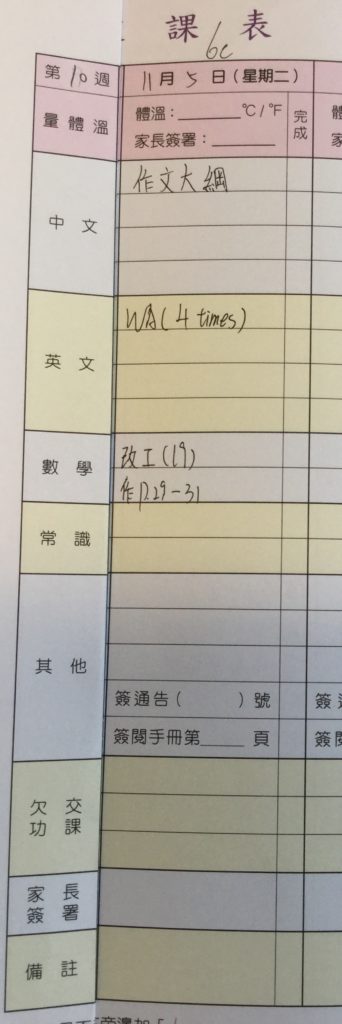 課表
6c
第10週 11月5日(星期二)
量體溫 體溫:______°C/°F 完成
家長簽署:______
中文 作文大綱
英文 WA(4 times)
數學 改工(19)
作P.29-31
常識
其他
簽通告( )號
簽閱手冊第____頁
欠交功課
家長簽署
備註